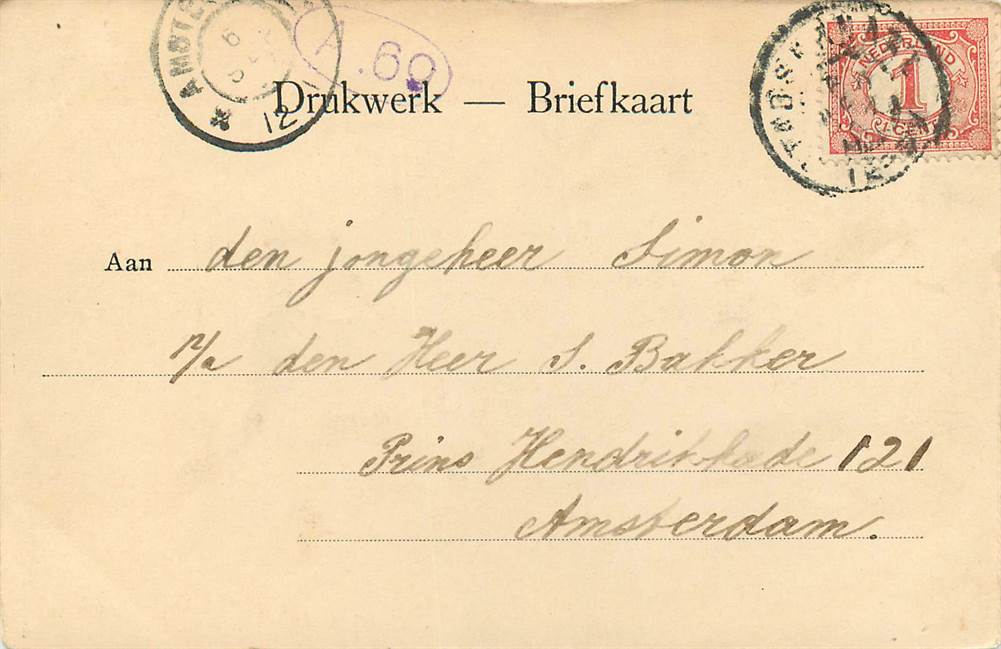 A.69
12
Drukwerk — Briefkaart
NEDERLAND
1
CENT
Aan den jongeheer Simon
p/a den Heer S. Bakker
Prins Hendrikkade 121
Amsterdam.